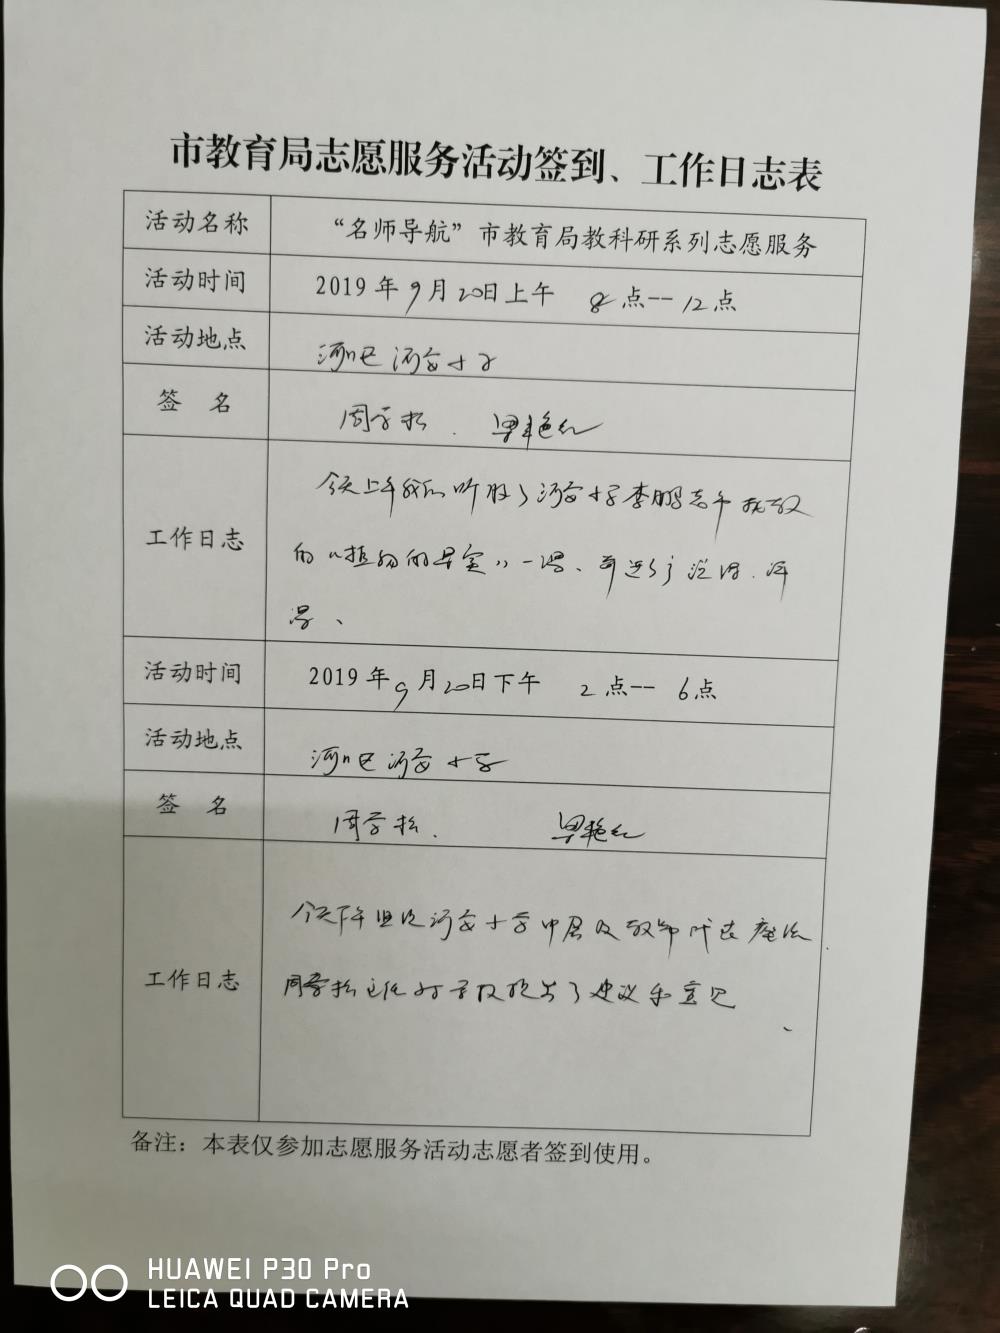 市教育局志愿服务活动签到、工作日志表
活动名称 “名师导航”市教育局教科研系列志愿服务
活动时间 2019年9月20日上午 8点--12点
活动地点 河口区河安小学
签 名 周学松 . 梁艳红
今天上午我们听取了河安小学李鹏老师执教
工作日志 的《植物的果实》一课、并进行了说课.评
课、
活动时间 2019年9月20日下午 2点--6点
活动地点 河口区河安小学
签 名 周学松. 梁艳红
今天下午组织河安小学中层及教师代表座谈.
工作日志 周学松主任对学校提出了建议和意见、
备注：本表仅参加志愿服务活动志愿者签到使用。
HUAWEI P30 Pro
LEICA QUAD CAMERA